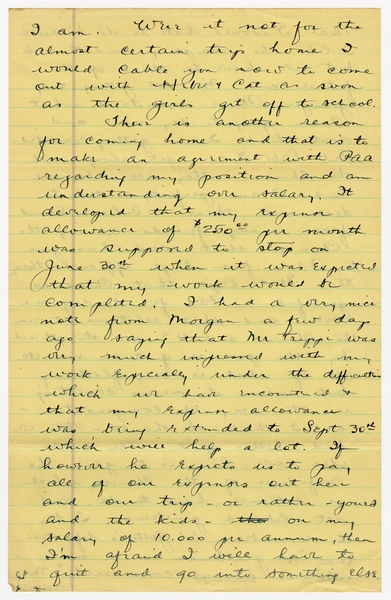 I am. Were it not for the
almost certain trip home I
would cable you now to come
out with & Cat as soon
as the girls get off to school.
There is another reason
for coming home and that is to
make an agreement with PAA
regarding my position and an
understanding over salary. It
developed that my expense
allowance of $250.00 per month
was supposed to stop on
June 30th when it was expected
that my work would be
completed. I had a very nice
note from Morgan a few days
ago saying that Mr Trippe was
very much impressed with my
work especially under the difficulties
which we have encountered &
that my expense allowance
was being extended to Sept 30th
which will help a lot. If
however he expects us to pay
all of our expenses out here
and our trip - or rather - yours
and the kids - on my
salary of 10.000 per annum, then
I'm afraid I will have to
quit and go into something else.